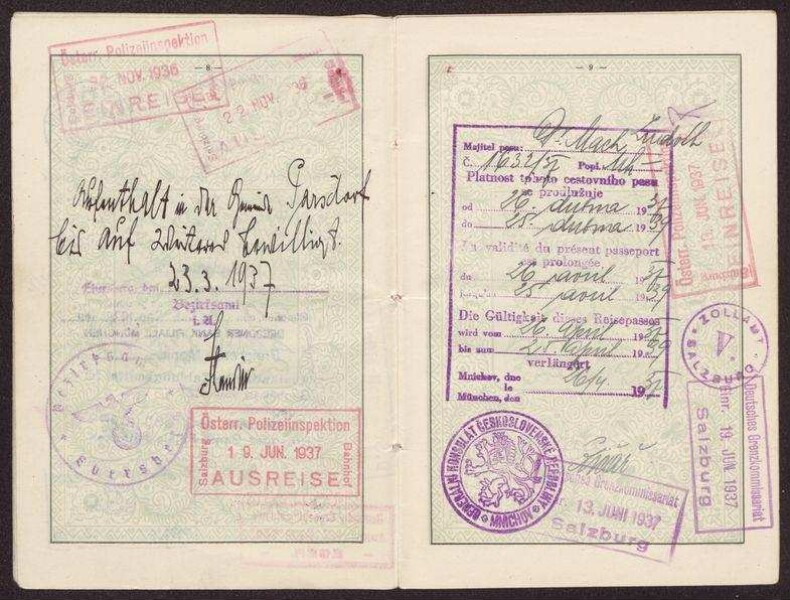 — 8 —
Österr. Polizeiinspektion
NOV. 1936
EINREISE
22 NOV. 36
Aufenthalt in der Gemeinde Parsdorf
bis auf weiteres bewilligt.
Ebersberg, den 23.3.1937
Bezirksamt
i. A.
Österr. Polizeiinspektion
Salzburg
19. JUN. 1937
Bahnhof
AUSREISE
— 9 —
Majitel pasu: Dr Mach Rudolf
Č. 1632/37 Popl.
Platnost tohoto cestovního pasu
se prodlužuje
od 26. dubna 1937
do 25. dubna 1939
La validité du présent passeport
est prolongée
du 26 avril 1937
jusqu'au 25 avril 1939
Die Gültigkeit dieses Reisepasses
wird vom 26. April 1937
bis zum 25. April 1939
verlängert
Mnichov, dne
le 26/4 1937
München, den
GENERÁLNÍ KONSULÁT ČESKOSLOVENSKÉ REPUBLIKY
MNICHOV
Österr. Polizeiinspektion
Salzburg
13. JUN. 1937
EINREISE
ZOLLAMT
V.
SALZBURG
Deutsches Grenzkommissariat
19. JUNI 1937
Salzburg
Grenzkommissariat
13. JUNI 1937
Salzburg